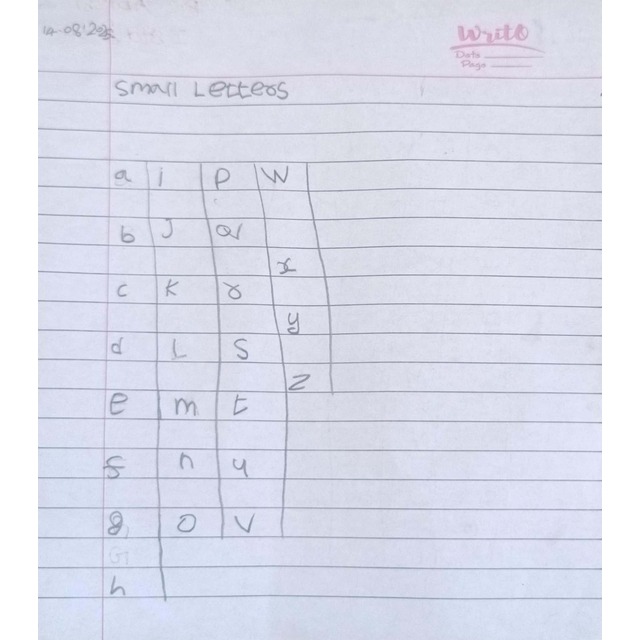 14.08.2025
Writo
Date
Page
Small Letters
a i p w
b j q
x
c k r
y
d L s
z
e m t
f n u
g o v
G
h